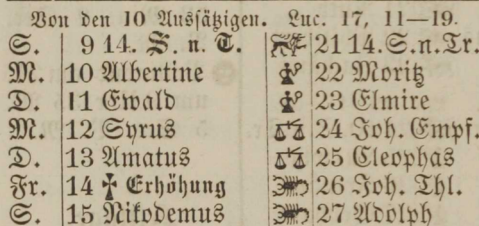 Von den 10 Ausſätzigen. Luc. 17, 11—19.
S. 9 14. S. n. T. 21 14. S. n. Tr.
M. 10 Albertine 22 Moritz
D. 11 Ewald 23 Elmire
M. 12 Syrus 24 Joh. Empf.
D. 13 Amatus 25 Cleophas
Fr. 14 ✝ Erhöhung 26 Joh. Thl.
S. 15 Nikodemus 27 Adolph